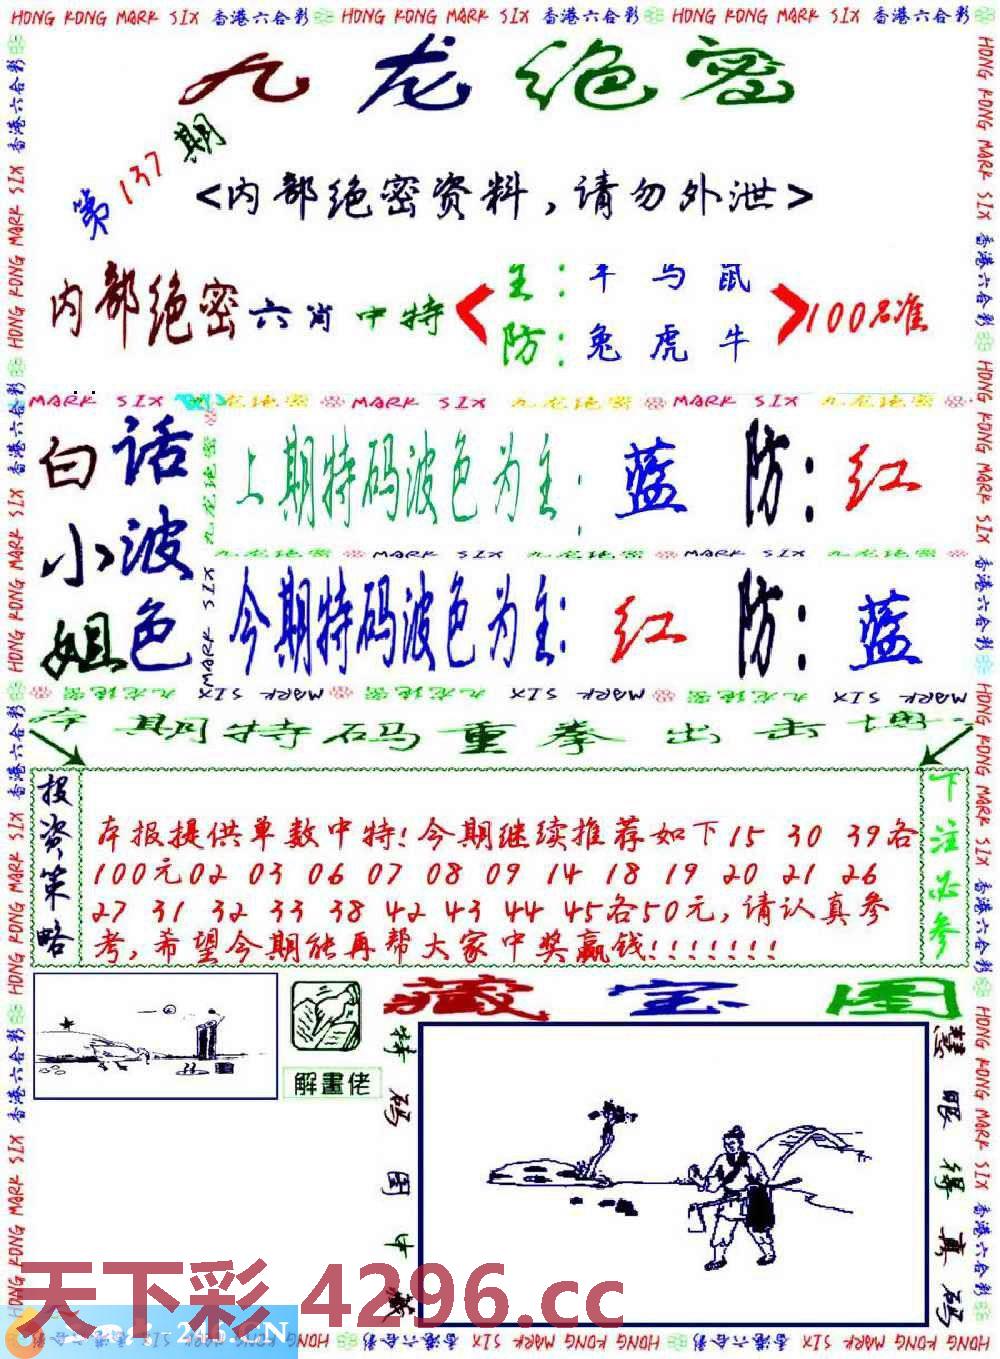 HONG KONG MARK SIX 香港六合彩 HONG KONG MARK SIX 香港六合彩 HONG KONG MARK SIX 香港六合彩
九龙绝密
第137期
<内部绝密资料,请勿外泄>
内部绝密六肖中特
主: 羊 马 鼠
防: 兔 虎 牛
100%准
MARK SIX 九龙绝密 MARK SIX 九龙绝密 MARK SIX 九龙绝密
白小姐
话波色
上期特码波色为主: 蓝 防: 红
九龙绝密 MARK SIX 九龙绝密 MARK SIX 九龙绝密
今期特码波色为主: 红 防: 蓝
本期特码重拳出击
投资策略
本报提供单数中特!今期继续推荐如下15 30 39各
100元02 03 06 07 08 09 14 18 19 20 21 26
27 31 32 33 38 42 43 44 45各50元,请认真参
考,希望今期能再帮大家中奖赢钱!!!!!!!
下注必参
藏宝图
解畫佬
特码图中藏
慧眼得真码
天下彩 4296.cc
246.CN